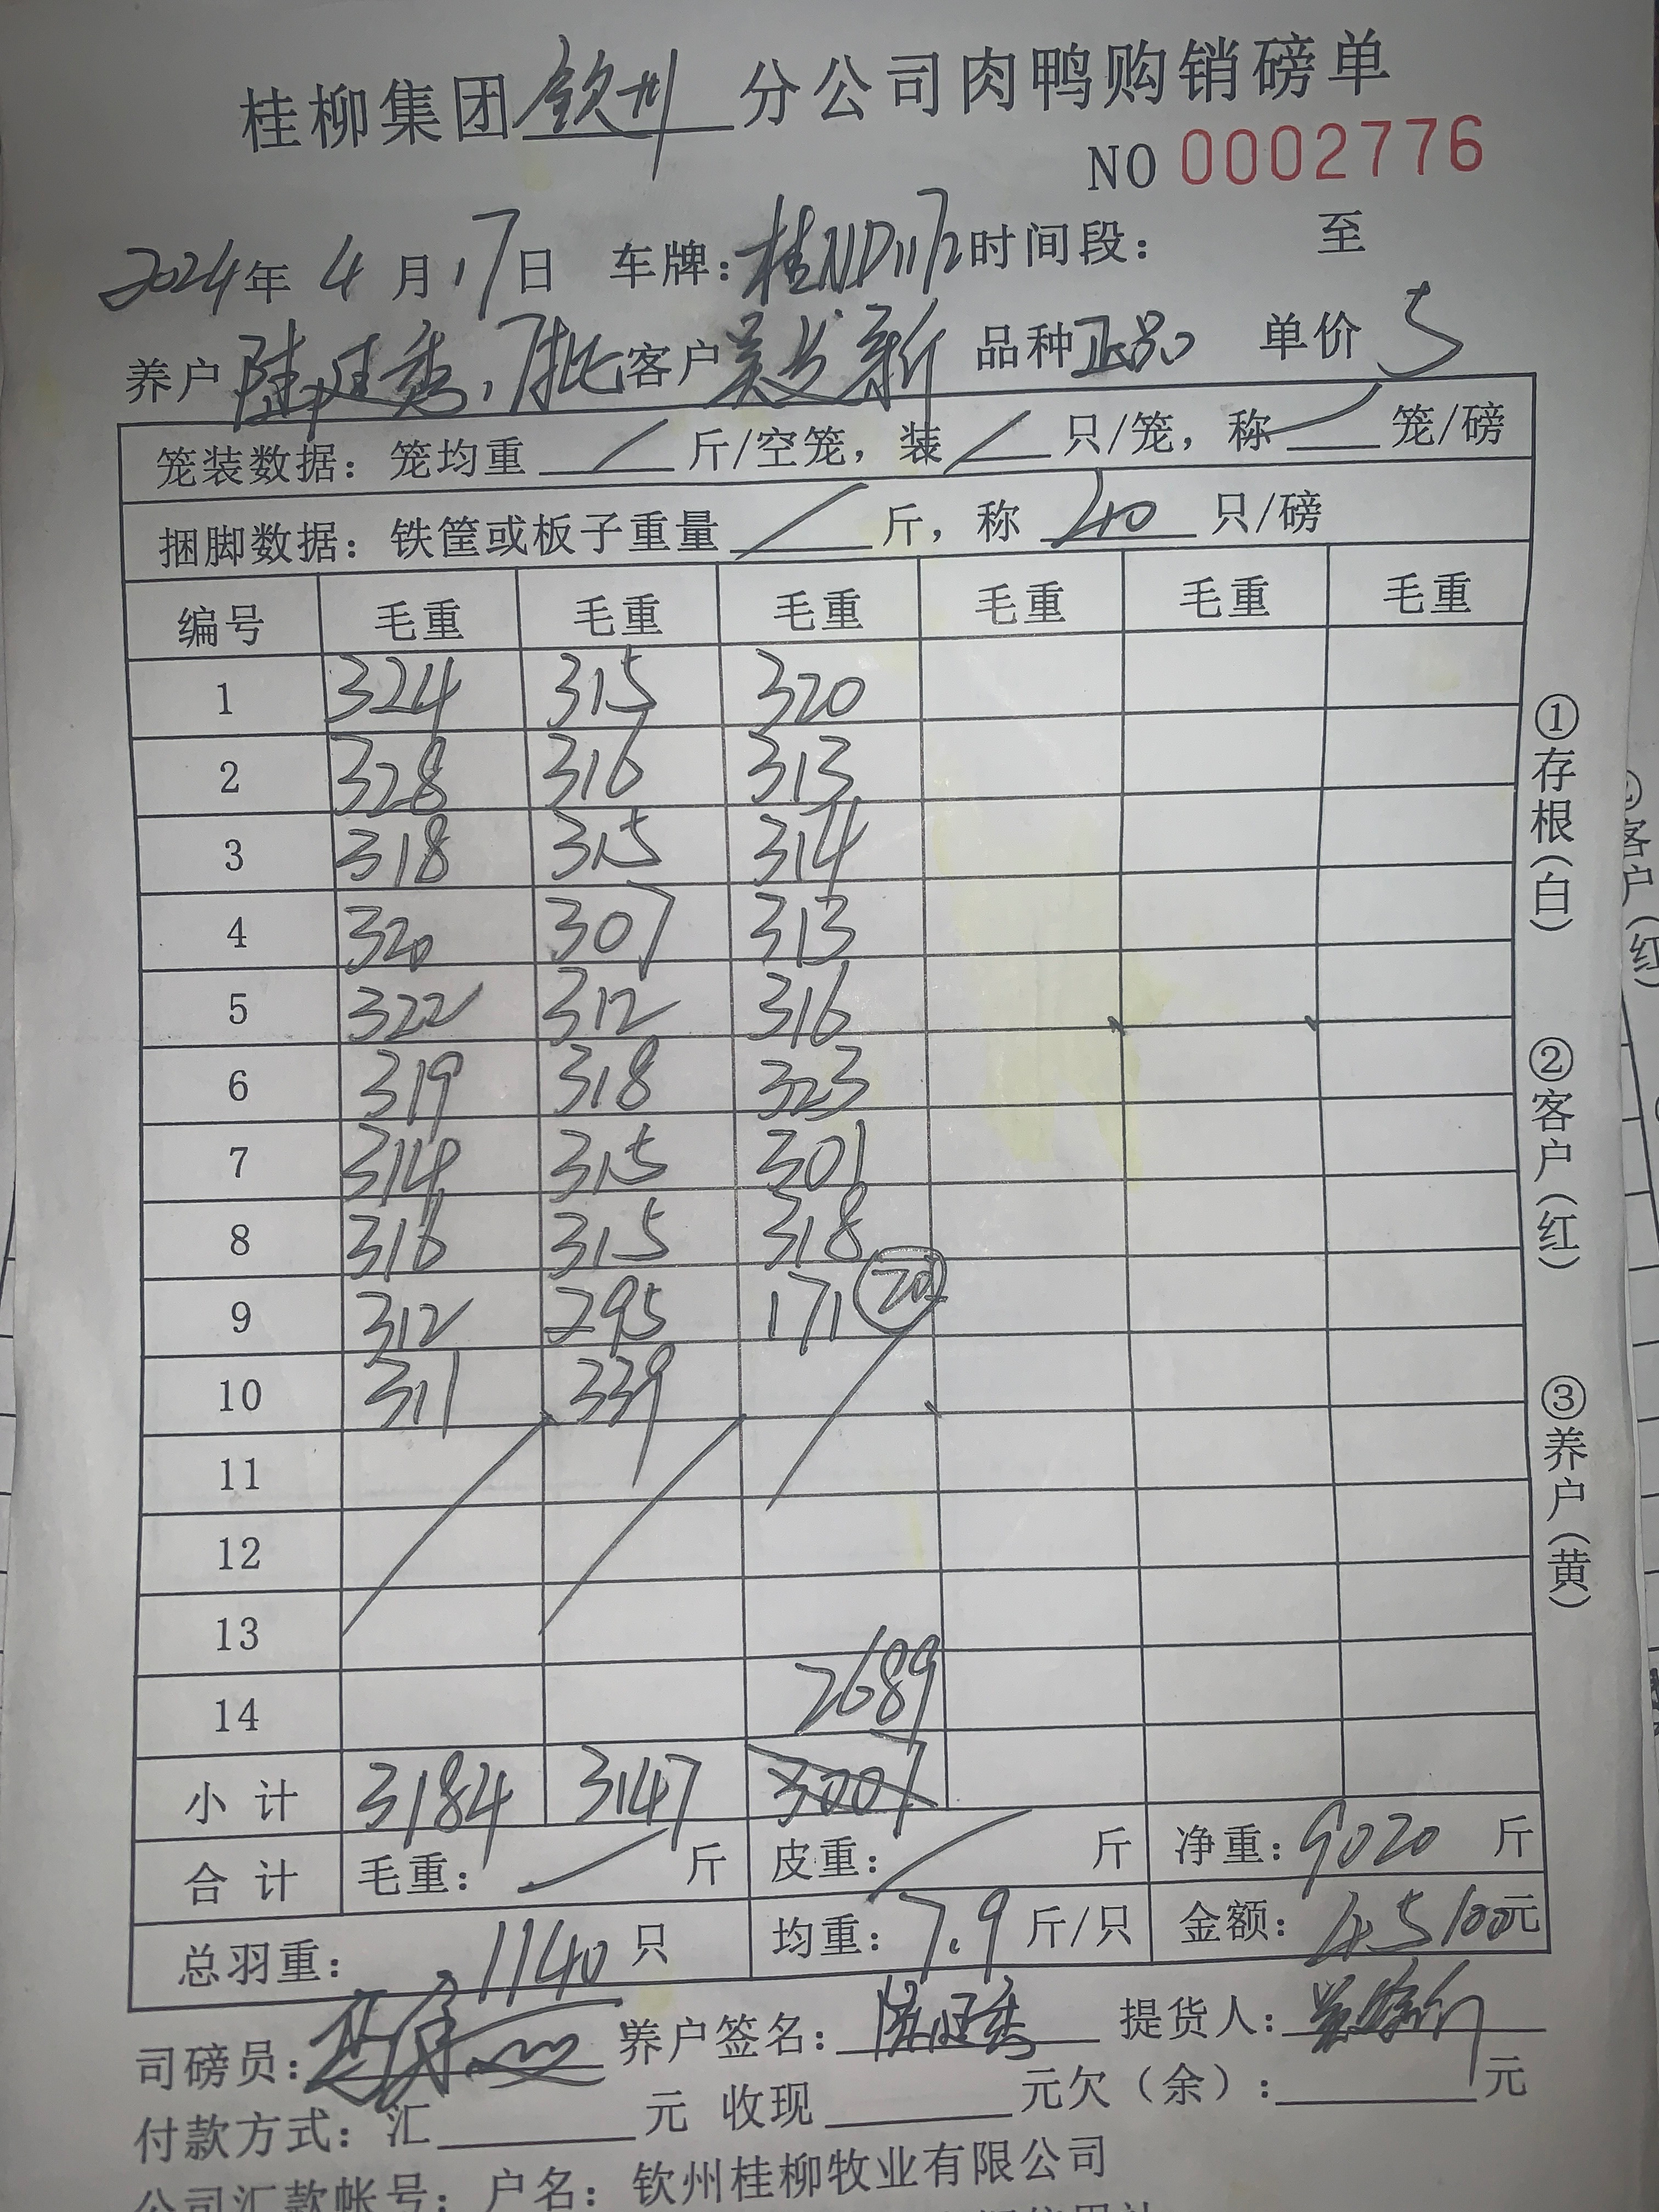 桂柳集团钦州分公司肉鸭购销磅单
NO 0002776
2024年 4 月 17日 车牌:桂ND1172时间段: 至
养户 陆廷秀,7批客户 吴发新 品种正品 单价 5
笼装数据: 笼均重 / 斤/空笼, 装 / 只/笼, 称 / 笼/磅
捆脚数据: 铁筐或板子重量 / 斤, 称 40 只/磅
编号 毛重 毛重 毛重 毛重 毛重 毛重
1 324 315 320
2 328 316 313
3 318 315 314
4 320 307 313
5 322 312 316
6 319 318 323
7 314 315 301
8 316 315 318
9 312 295 171 20
10 311 339
11
12
13
14 2689
小 计 3184 3147 3007
合 计 毛重: / 斤 皮重: / 斤 净重: 9020 斤
总羽重: 1140 只 均重: 7.9 斤/只 金额: 45100元
司磅员: 养户签名: 陆廷秀 提货人:
付款方式: 汇 元 收现 元欠(余): 元
公司汇款帐号: 户名: 钦州桂柳牧业有限公司
①存根(白)
②客户(红)
③养户(黄)
客户(红)